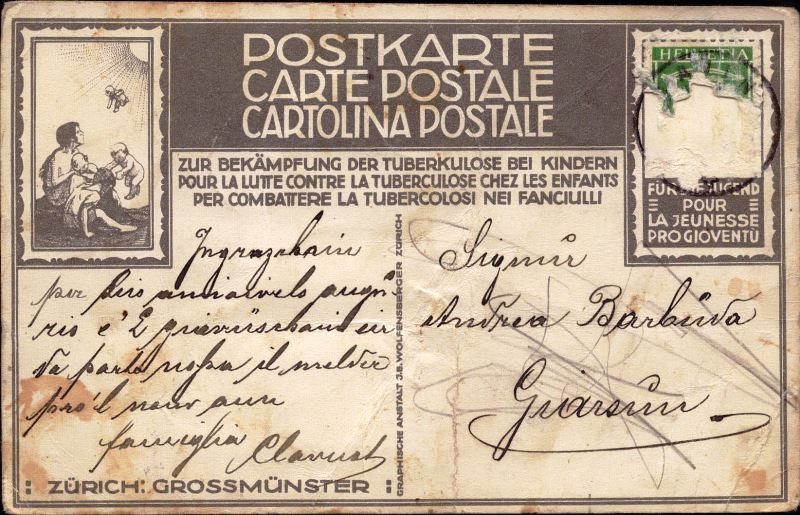 POSTKARTE
CARTE POSTALE
CARTOLINA POSTALE
ZUR BEKÄMPFUNG DER TUBERKULOSE BEI KINDERN
POUR LA LUTTE CONTRE LA TUBERCULOSE CHEZ LES ENFANTS
PER COMBATTERE LA TUBERCOLOSI NEI FANCIULLI
HELVETIA
FÜR DIE JUGEND
POUR
LA JEUNESSE
PRO GIOVENTÙ
Ingrazchain
per Sius amiaivels augü
ris e'l giavüschain eir
da part nossa il melder
pro'l nouv ann
famiglia
GRAPHISCHE ANSTALT J.E. WOLFENSBERGER ZÜRICH
Signur
Andrea Barbüda
Giarsun
ZÜRICH: GROSSMÜNSTER